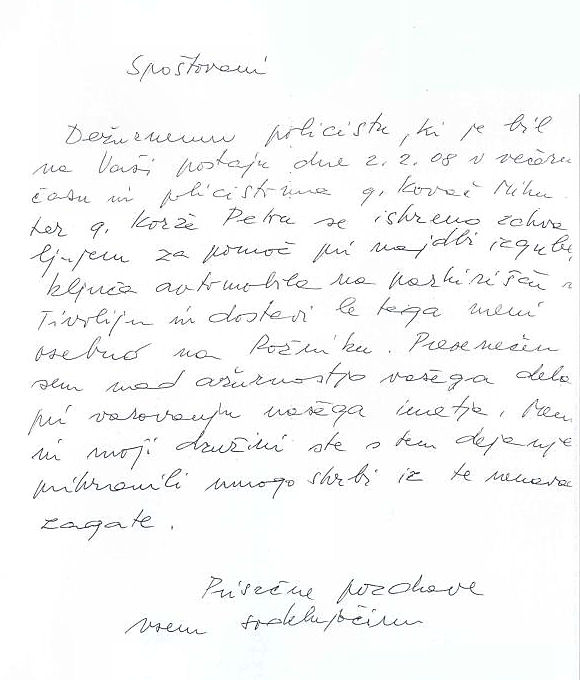 Spoštovani
Dežurnemu policistu, ki je bil
na Vaši postaji dne 2.2.08 v večernem
času in policistoma g. Kovač Mihu
ter g. Korže Petru se iskreno zahva
ljujem za pomoč pri najdbi izgublj
ključa avtomobila na parkirišču v
Tivoliju in dostavi le tega meni
osebno na Rožniku. Presenečen
sem nad ažurnostjo vašega dela
pri varovanju našega imetja. Meni
in moji družini ste s tem dejanje
prihranili mnogo skrbi iz te nenava
zagate.
Prisrčne pozdrave
vsem sodelujočim